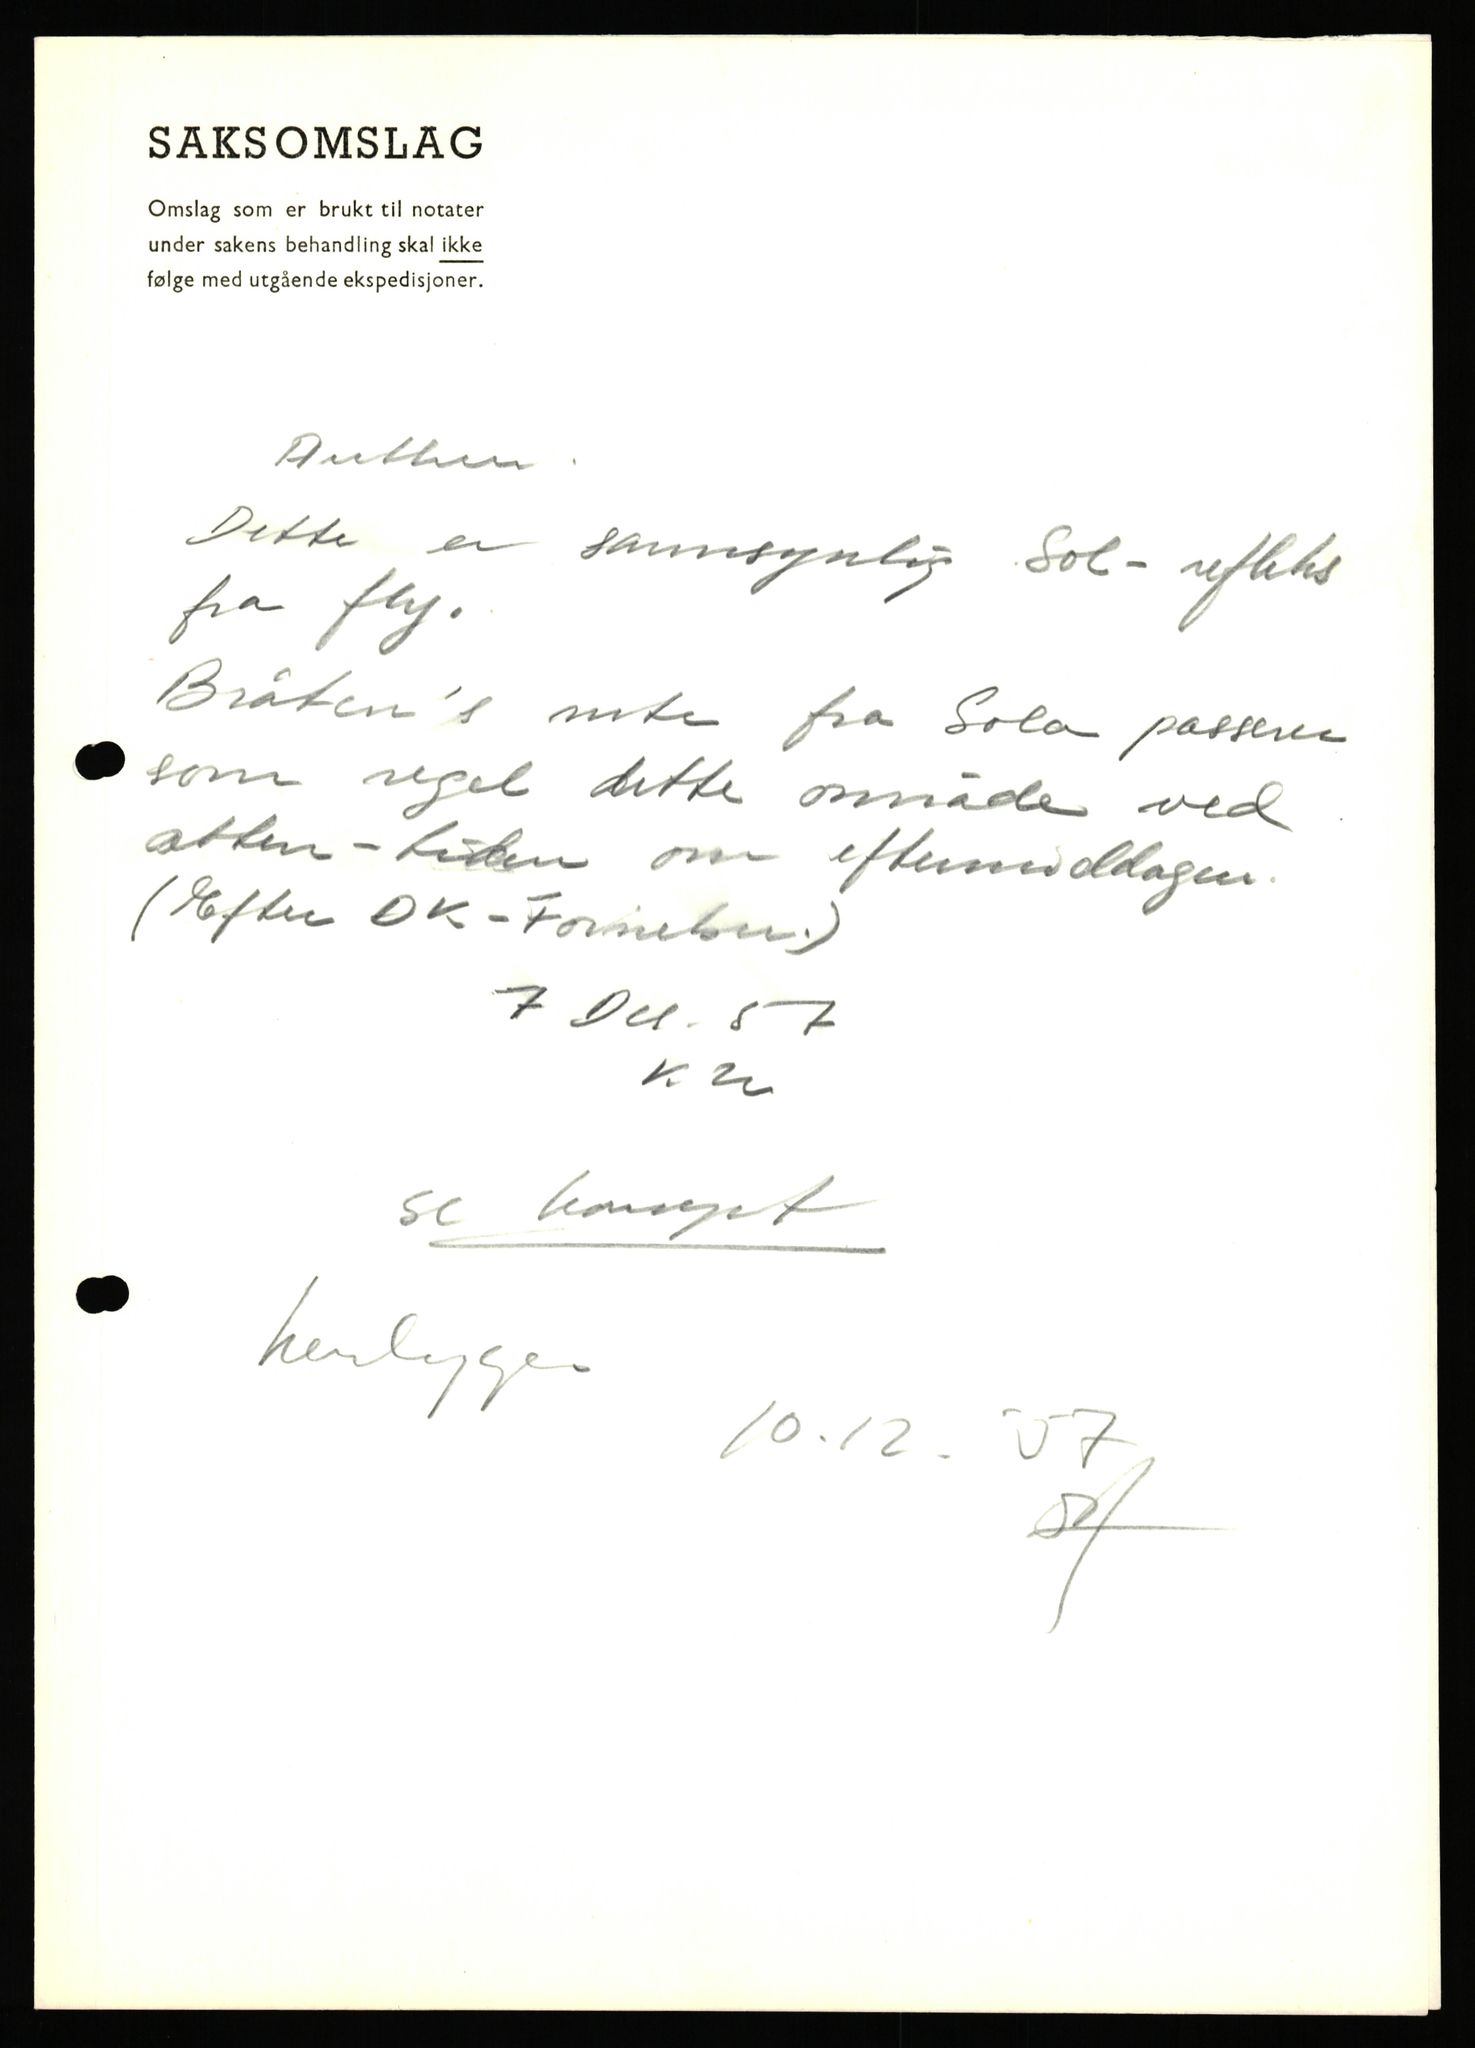 SAKSOMSLAG
Omslag som er brukt til notater
under sakens behandling skal ikke
følge med utgående ekspedisjoner.
Dette er sannsynlig Sol-refleks
fra fly.
Bråten's rute fra Sola passerer
som regel dette område ved
atten-tiden om eftermiddagen.
(Efter DK-Fornebu.)
7 Des. 57
se konsept
henlegges
10.12.57